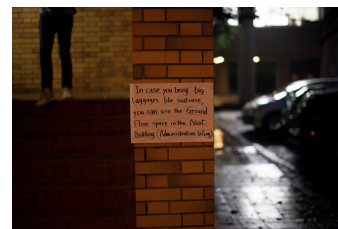 In case you bring big
laggages like suitcase,
you can use the Ground
Floor space in the Next
Building (Administration Wing)